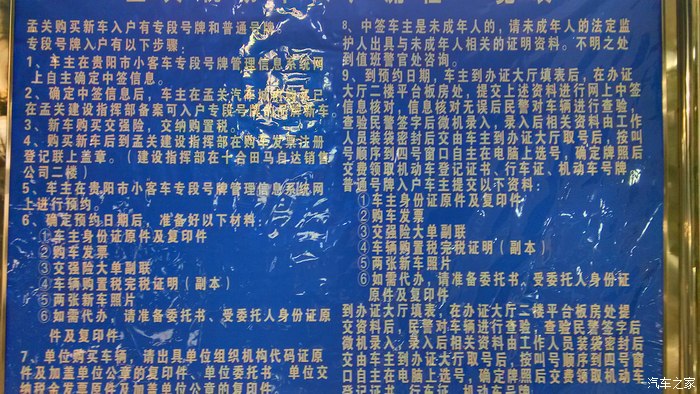 孟关购买新车入户有专段号牌和普通号牌,
专段号牌入户有以下步骤:
1、车主在贵阳市小客车专段号牌管理信息系统网
上自主确定中签信息。
2、确定中签信息后,车主在孟关汽车
在孟关建设指挥部备案可入户专段号牌
3、新车购买交强险,交纳购置税。
4、购买新车后到孟关建设指挥部在购车发票注册
登记联上盖章。(建设指挥部在十合田马自达销售
公司二楼)
5、车主在贵阳市小客车专段号牌管理信息系统网
上进行预约。
6、确定预约日期后,准备好以下材料:
①车主身份证原件及复印件
②购车发票
③交强险大单副联
④车辆购置税完税证明(副本)
⑤两张新车照片
⑥如需代办,请准备委托书、受委托人身份证原
件及复印件
7、单位购买车辆,请出具单位组织机构代码证原
件及加盖单位公章的复印件、单位委托书、单位交
纳税金发票原件及加盖单位公章的复印件。
8、中签车主是未成年人的,请未成年人的法定监
护人出具与未成年人相关的证明资料。不明之处
到值班警官处咨询。
9、到预约日期,车主到办证大厅填表后,在办证
大厅二楼平台板房处,提交上述资料进行网上中签
信息核对,信息核对无误后民警对车辆进行查验,
查验民警签字后微机录入,录入后相关资料由工作
人员装袋密封后交由车主到办证大厅取号后,按叫
号顺序到四号窗口自主在电脑上选号,确定牌照后
交费领取机动车登记证书、行车证、机动车号牌
普通号牌入户车主提交以下资料:
①车主身份证原件及复印件
②购车发票
③交强险大单副联
④车辆购置税完税证明(副本)
⑤两张新车照片
⑥如需代办,请准备委托书、受委托人身份证
原件及复印件
到办证大厅填表,在办证大厅二楼平台板房处提
交资料后,民警对车辆进行查验,查验民警签字后
微机录入,录入后相关资料由工作人员装袋密封后
交由车主到办证大厅取号后,按叫号顺序到四号窗
口自主在电脑上选号,确定牌照后交费领取机动车
登记证书、行车证、机动车号牌
汽车之家